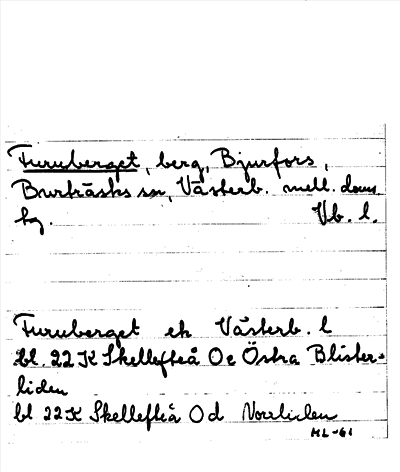 Furuberget, berg, Bjurfors,
Burträsks sn, Västerb. mell. doms.
hg. Vb. l.
Furuberget ek Västerb. l
bl. 22 K Skellefteå Oc Östra Blister-
liden
bl 22 K Skellefteå Od Norrliden
ML-61